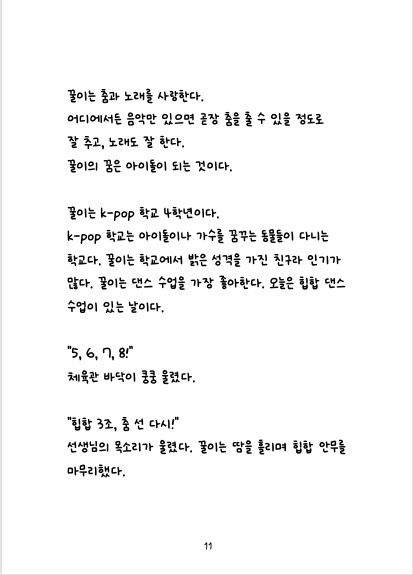 꿀이는 춤과 노래를 사랑한다.
어디에서든 음악만 있으면 곧장 춤을 출 수 있을 정도로
잘 추고, 노래도 잘 한다.
꿀이의 꿈은 아이돌이 되는 것이다.
꿀이는 k-pop 학교 4학년이다.
k-pop 학교는 아이돌이나 가수를 꿈꾸는 동물들이 다니는
학교다. 꿀이는 학교에서 밝은 성격을 가진 친구라 인기가
많다. 꿀이는 댄스 수업을 가장 좋아한다. 오늘은 힙합 댄스
수업이 있는 날이다.
"5, 6, 7, 8!"
체육관 바닥이 쿵쿵 울렸다.
"힙합 3조, 춤 선 다시!"
선생님의 목소리가 울렸다. 꿀이는 땀을 흘리며 힙합 안무를
마무리했다.
11